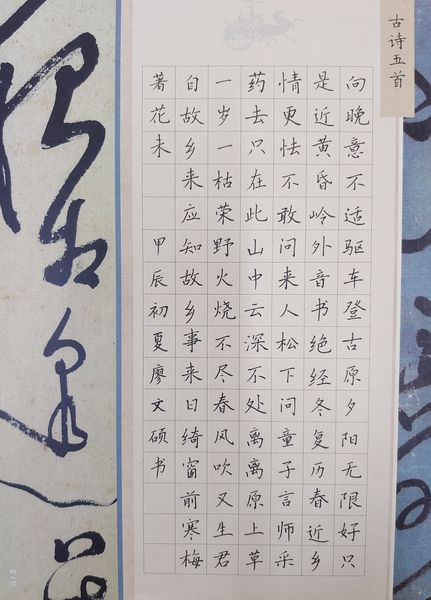 古诗五首
向晚意不适驱车登古原夕阳无限好只
是近黄昏岭外音书绝经冬复历春近乡
情更怯不敢问来人松下问童子言师采
药去只在此山中云深不处离离原上草
一岁一枯荣野火烧不尽春风吹又生君
自故乡来应知故乡事来日绮窗前寒梅
著花未 甲辰初夏廖文硕书